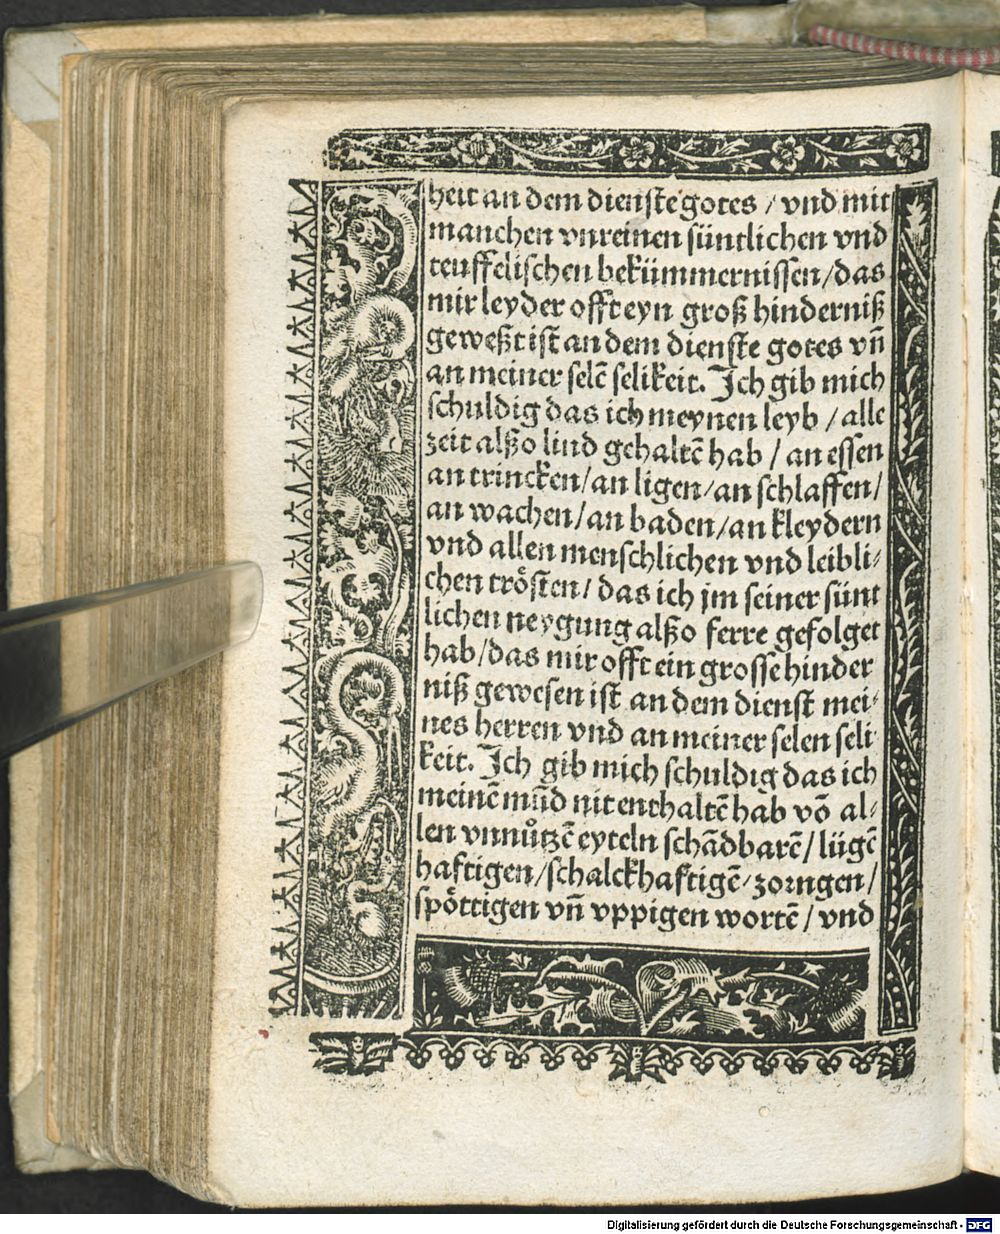 heit an dem dienste gotes / vnd mit
manchen vnreinen süntlichen vnd
teuffelischen bekümmernissen / das
mir leyder offt eyn groß hinderniß
geweßt ist an dem dienste gotes vñ
an meiner selē selikeit. Ich gib mich
schuldig das ich meynen leyb / alle
zeit alßo lind gehaltē hab / an essen
an trincken / an ligen / an schlaffen /
an wachen / an baden / an kleydern
vnd allen menschlichen vnd leibli⸗
chen trösten / das ich jm seiner sünt
lichen neygung alßo ferre gefolget
hab / das mir offt ein grosse hinder
niß gewesen ist an dem dienst mei⸗
nes herren vnd an meiner selen seli
keit. Ich gib mich schuldig das ich
meinē mūd nit enthaltē hab vō al⸗
len vnnůtzē eyteln schādbarē / lügē
haftigen / schalckhaftigē / zorngen /
spöttigen vñ vppigen wortē / vnd
Digitalisierung gefördert durch die Deutsche Forschungsgemeinschaft - DFG